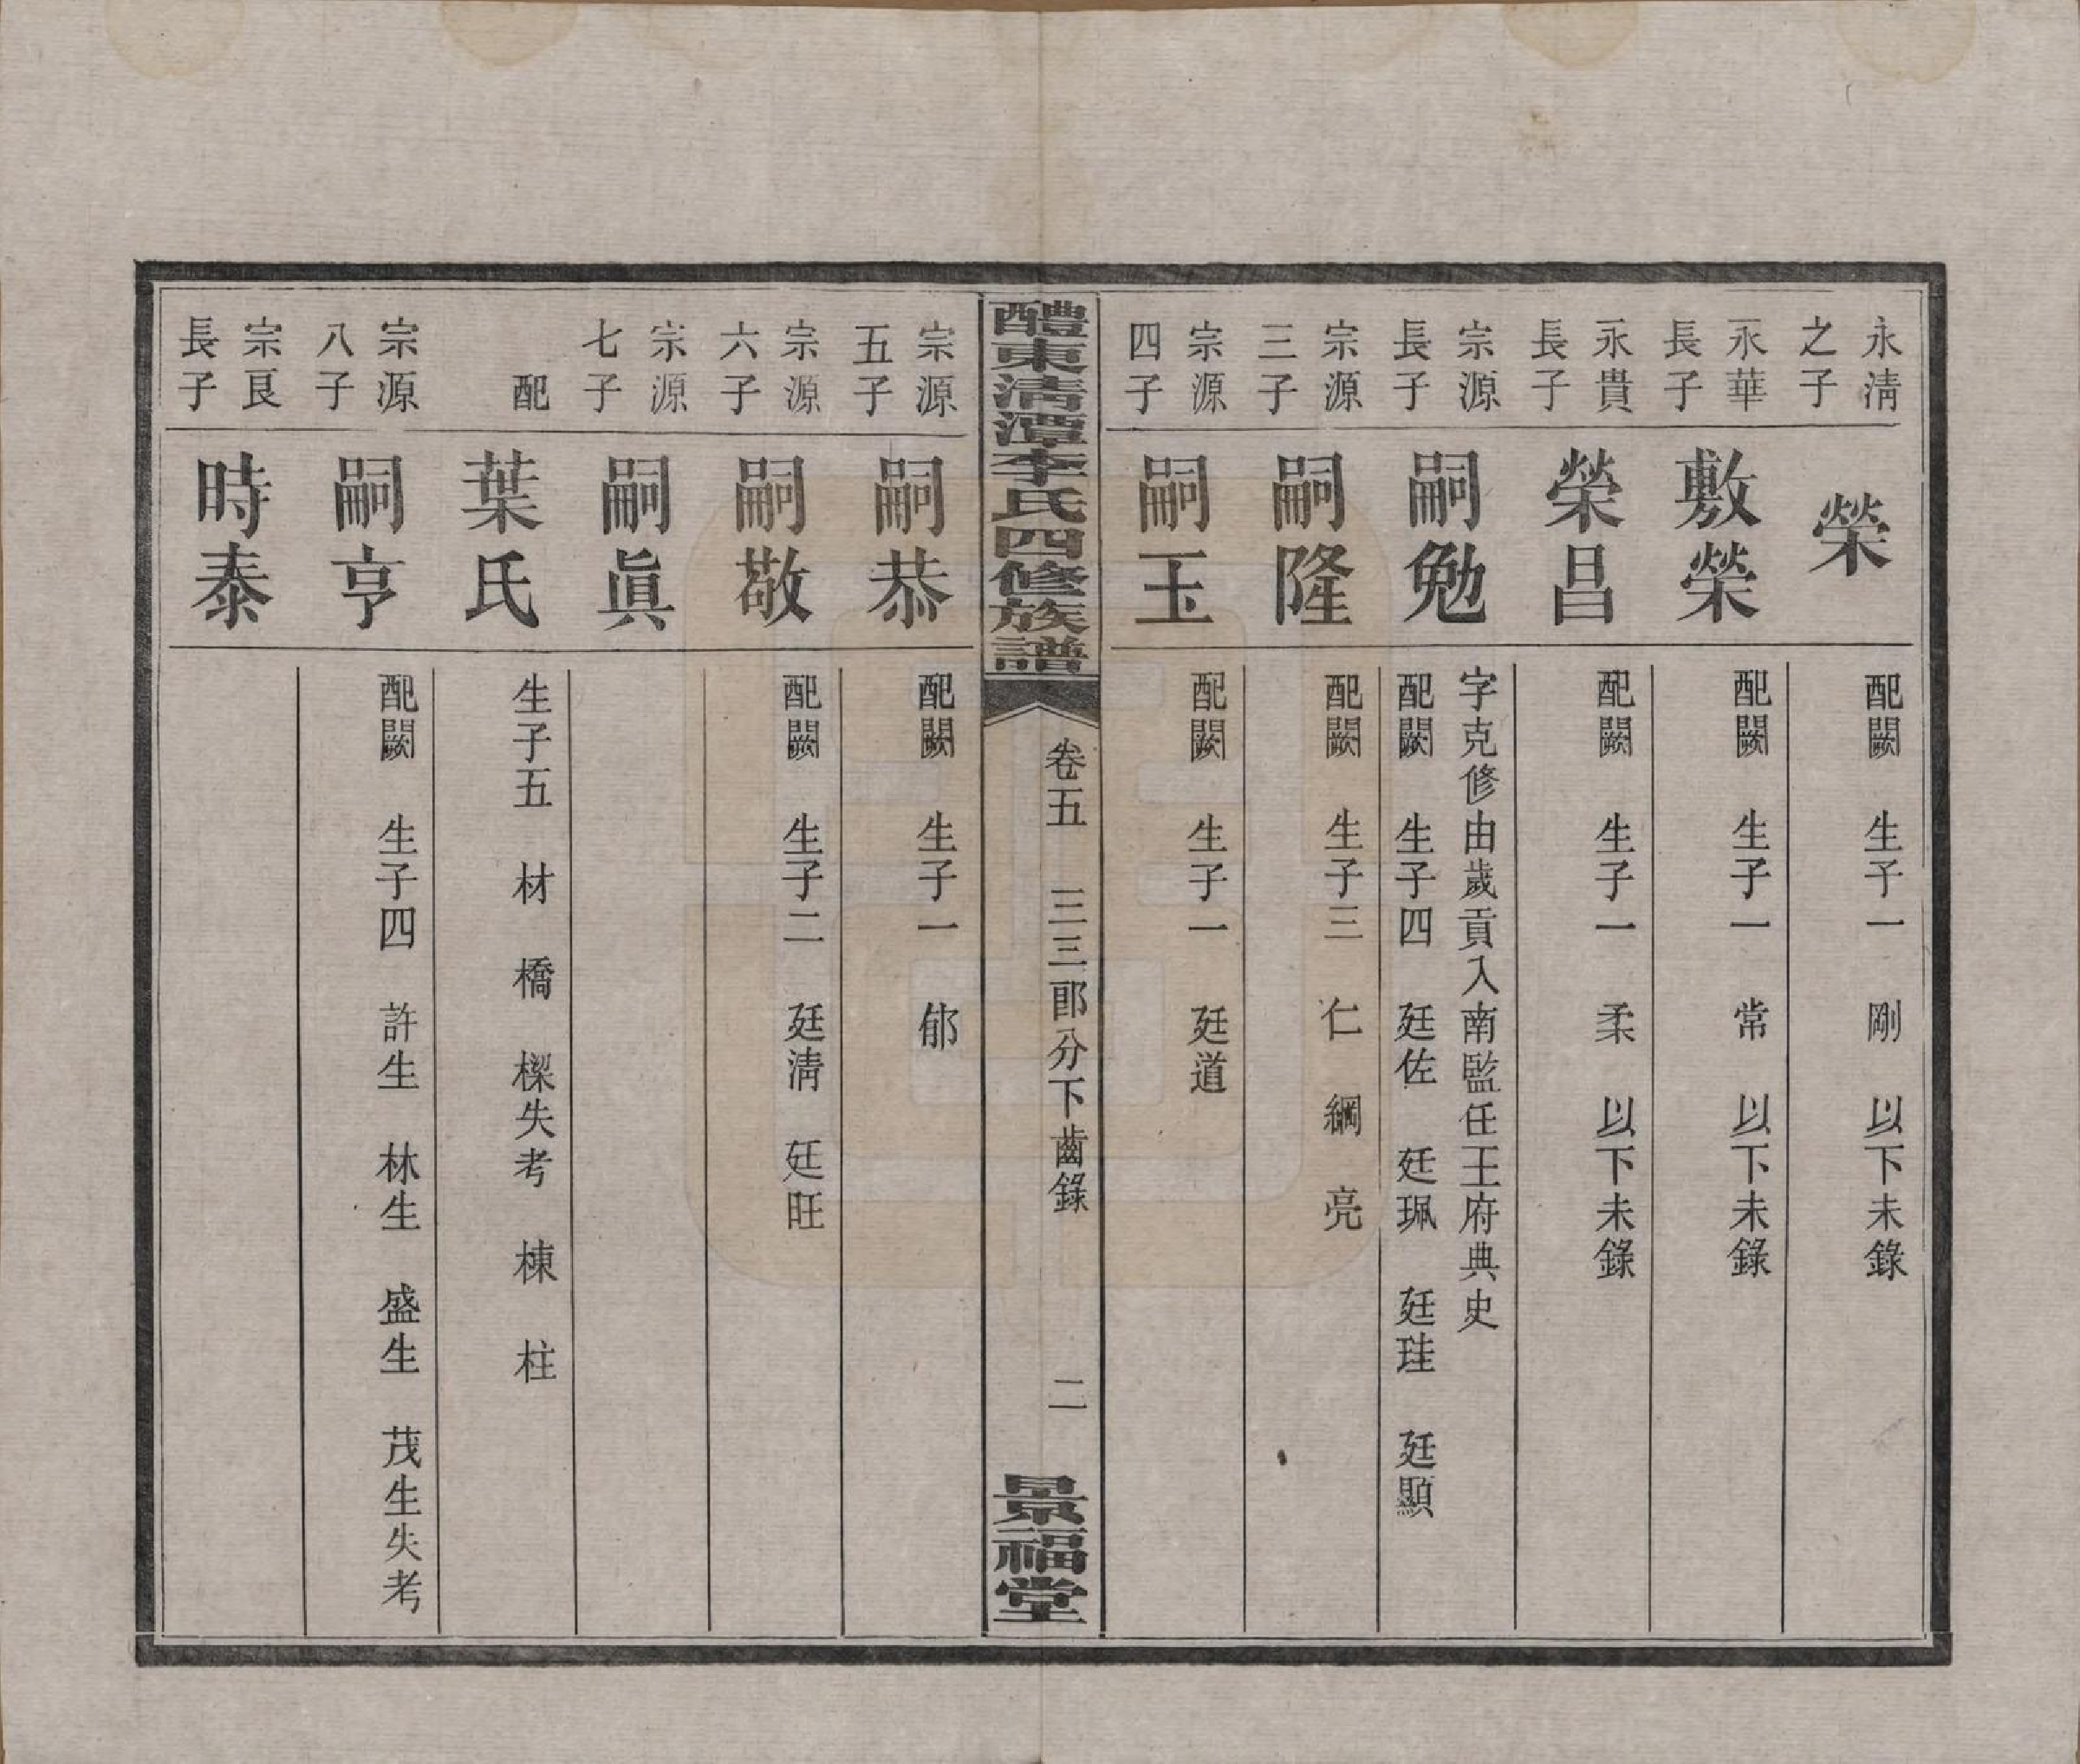 永清
之子
榮
配闕　生子一　剛　以下未錄
永華
長子
敷榮
配闕　生子一　常　以下未錄
永貴
長子
榮昌
配闕　生子一　柔　以下未錄
宗源
長子
嗣勉
字克修由歲貢入南監任王府典史
配闕　生子四　廷佐　廷珮　廷珪　廷顯
宗源
三子
嗣隆
配闕　生子三　仁　綱　亮
宗源
四子
嗣玉
配闕　生子一　廷道
醴東清潭李氏四修族譜
卷五　三三郎分下齒錄　二
景福堂
宗源
五子
嗣恭
配闕　生子一　郁
宗源
六子
嗣敬
配闕　生子二　廷清　廷旺
宗源
七子
嗣眞
配
葉氏
生子五　材　橋　樑失考　棟　柱
宗源
八子
嗣亨
配闕　生子四　許生　林生　盛生　茂生失考
宗良
長子
時泰